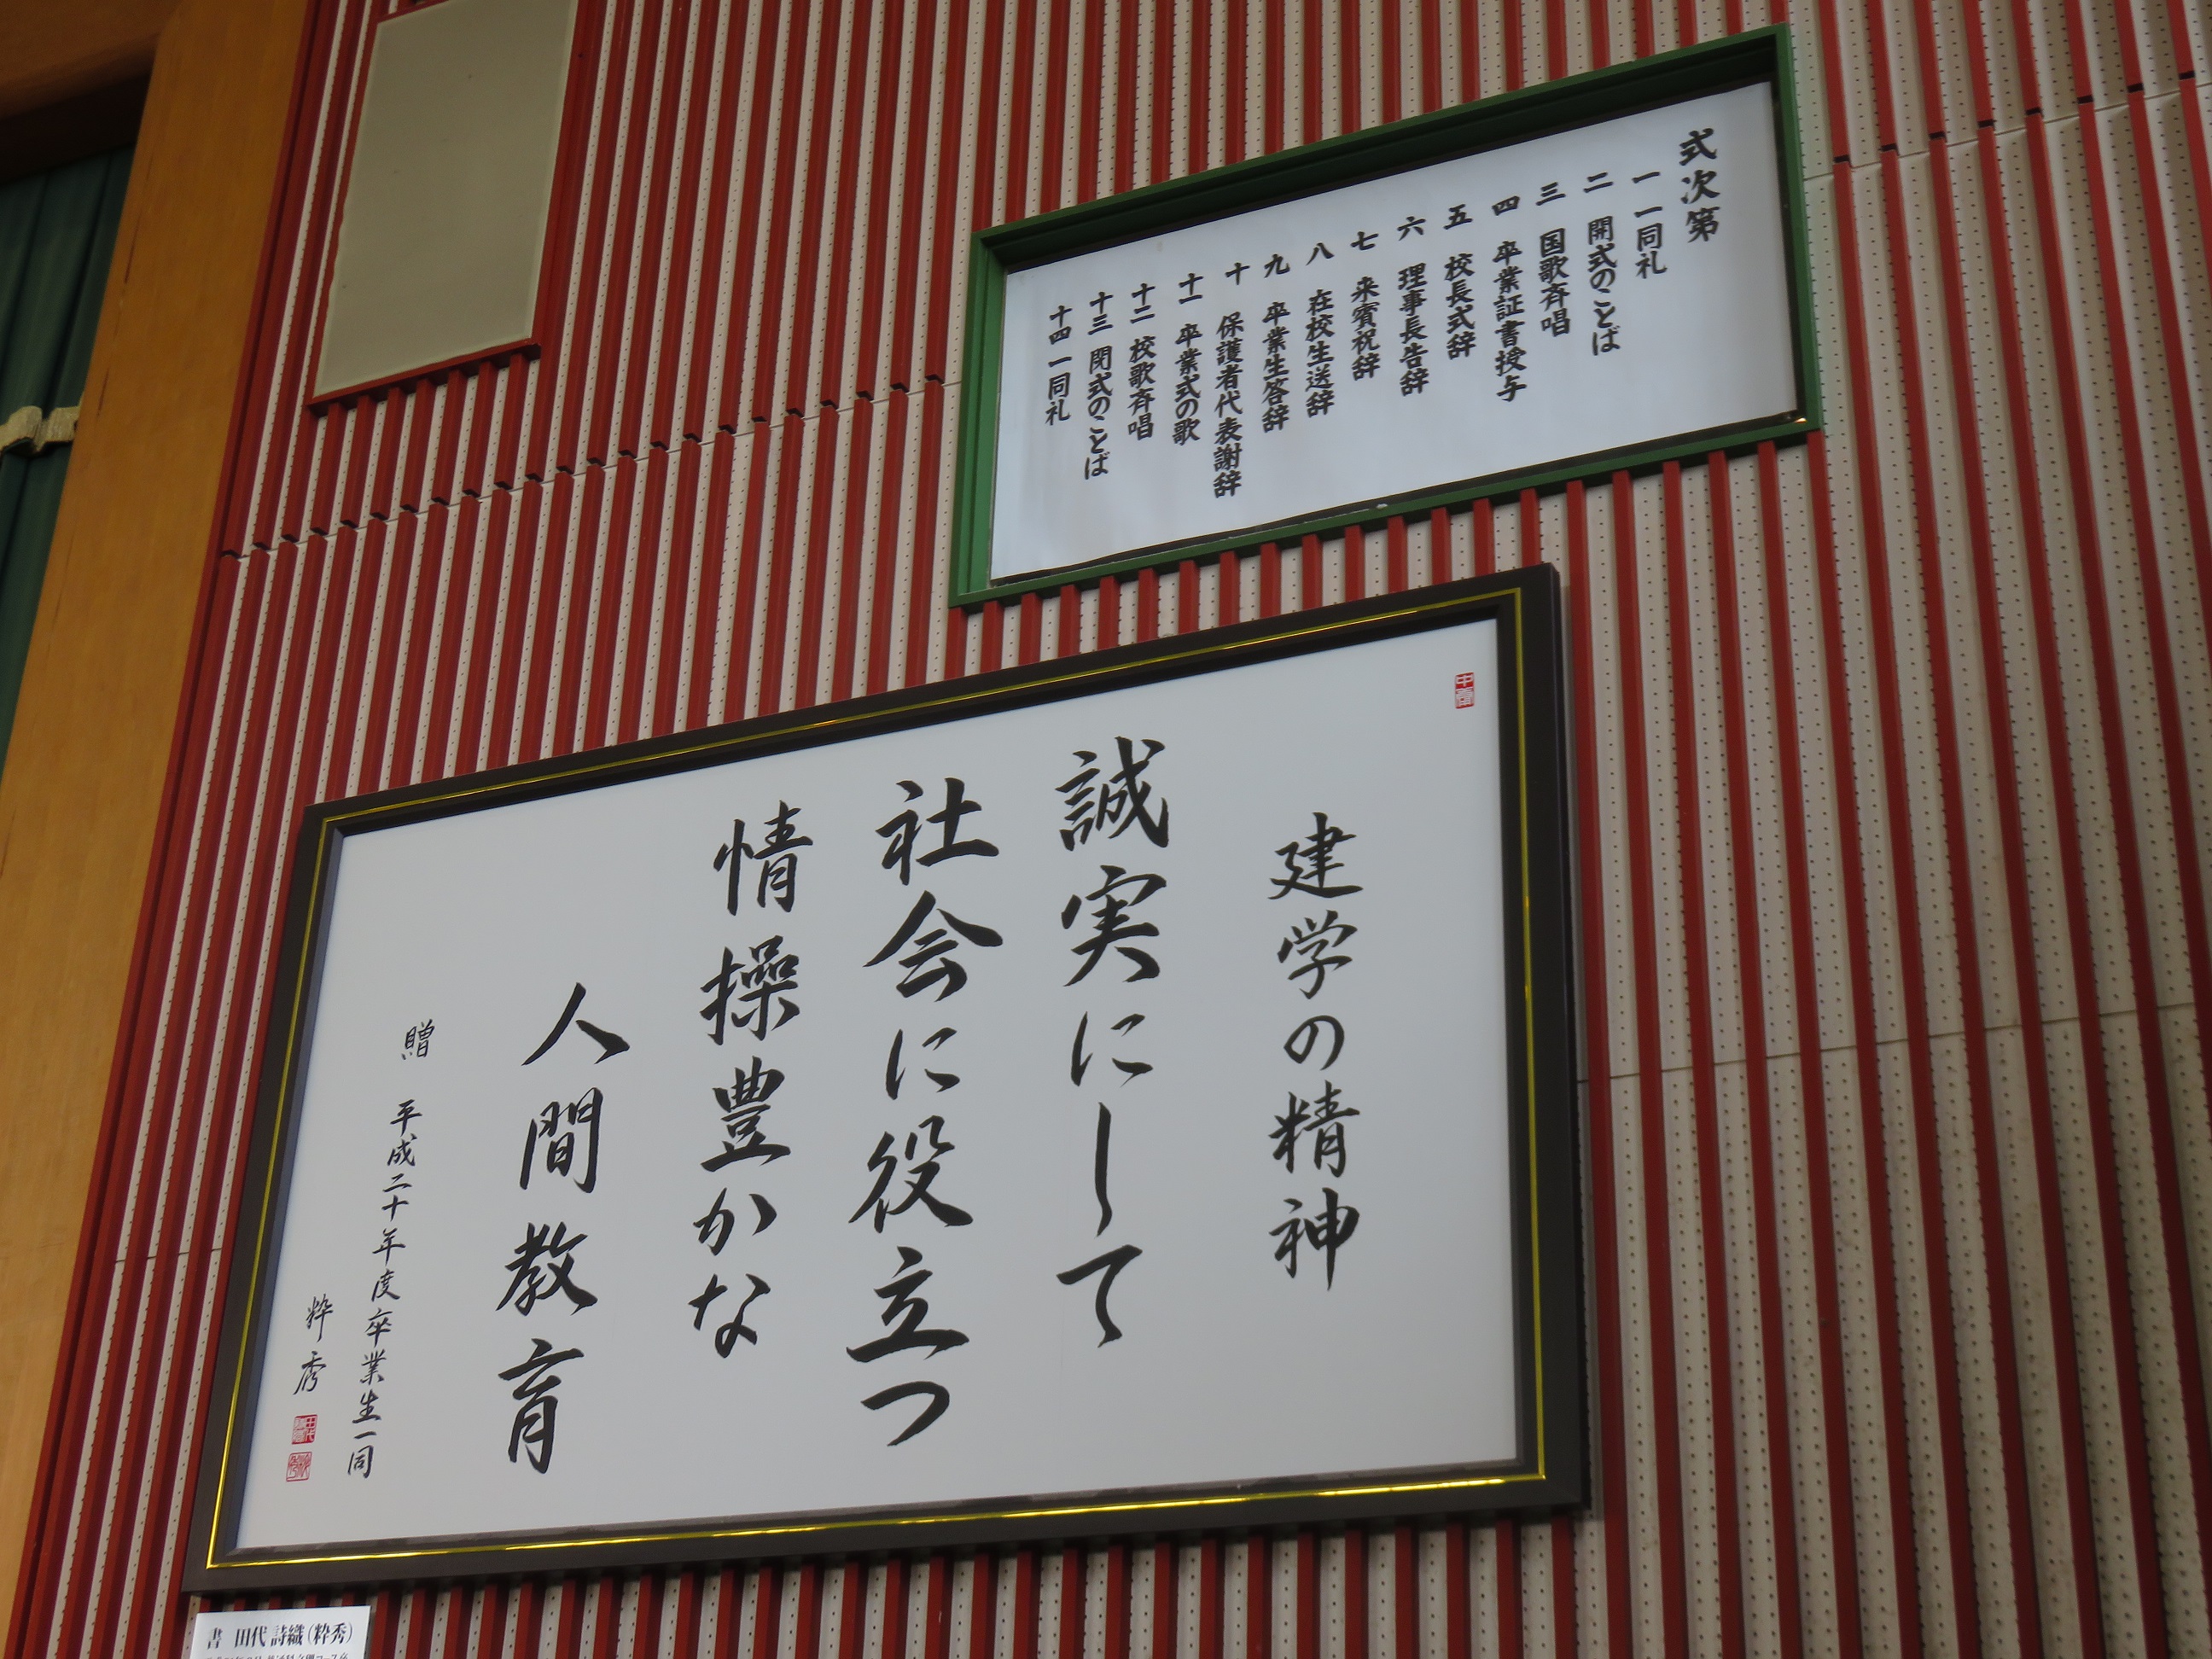 式次第
一 一同礼
二 開式のことば
三 国歌斉唱
四 卒業証書授与
五 校長式辞
六 理事長告辞
七 来賓祝辞
八 在校生送辞
九 卒業生答辞
十 保護者代表謝辞
十一 卒業式の歌
十二 校歌斉唱
十三 閉式のことば
十四 一同礼
建学の精神
誠実にして
社会に役立つ
情操豊かな
人間教育
贈 平成二十年度卒業生一同
粋秀
書 田代 詩織(粋秀)